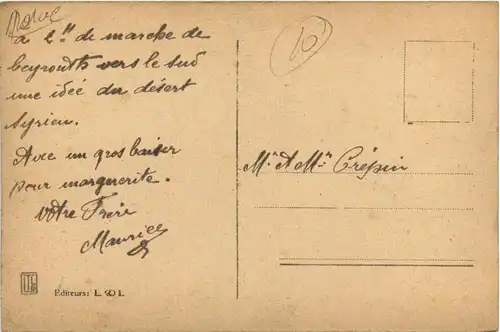 à 2 h de marche de
beyrouth vers le sud
une idée du désert
syrien.
Avec un gros baiser
pour marguerite.
Votre Frère
Maurice
10
Mr & Mme Crépin
Editeurs: L. L.